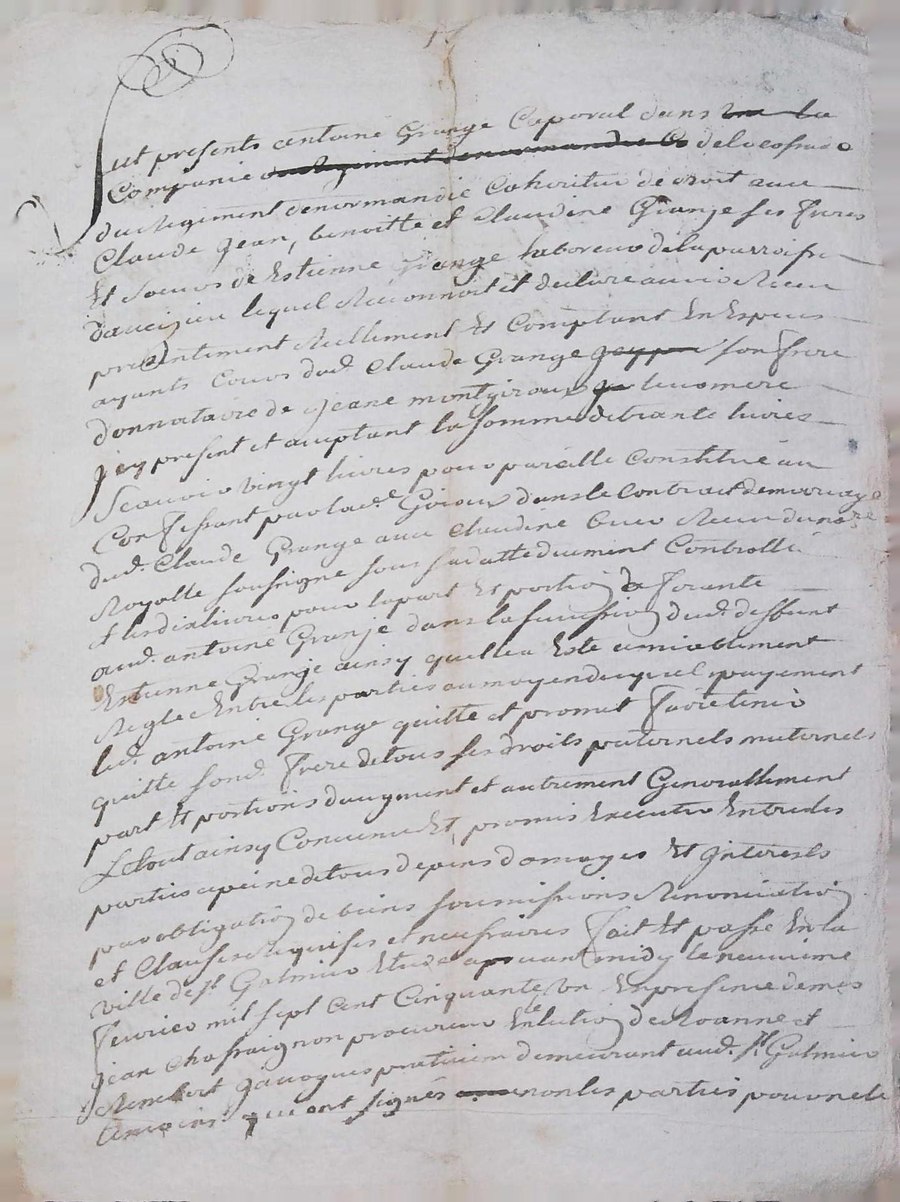 fut presents antoine Grange Caporal dans la
Compagnie de
du Regiment de normandie Cohoritier de droit avec
Claude Jean, benoitte et Claudine Granje ses freres
Et soeurs de Estienne Grange laboreur de la parroisse
d'aveizieu lequel Reconnoit et declare avoir Receu
presentement Reellement Et Comptant En Especes
ayants Cours dud. Claude Grange son frere
donnataire de Jeane montgiroux leur mere
Icy present et aceptant la somme de trante livres
Scavoir vingt livres pour pareille Constitué au
Confessant par lad. Giroux dans le Contract de mariage
dud. Claude Grange avec Claudine Receu du no.re
Royalle soussigné sous sa datte duement Controllé
Et les dix livres pour la part Et portion
aud. antoine Granje dans la succession dud. deffunt
Estienne Granje ainsy quil a Esté amiablement
Reglé Entre les parties au moyen duquel payement
led. antoine Grange quitte et promet faire tenir
quitte sond. frere de tous ses droits paternels maternels
part Et portions d'augment et autrement Generallement
Le tout ainsy Convenu Et promis Executer Entre les
parties a peine de tous depens domages Et Interests
par obligation de biens soumissions Renonciation
et Clauses Requises et necessaires fait Et passé En la
ville de St. Galmier Etude avant midy le neuvieme
fevrier mil sept cent Cinquante un En presence de mes
Jean Chassaignon procureur En lection de Roanne et
Jacques praticien demeurant aud. St Galmier
temoins qui ont signés non les parties pour ne le